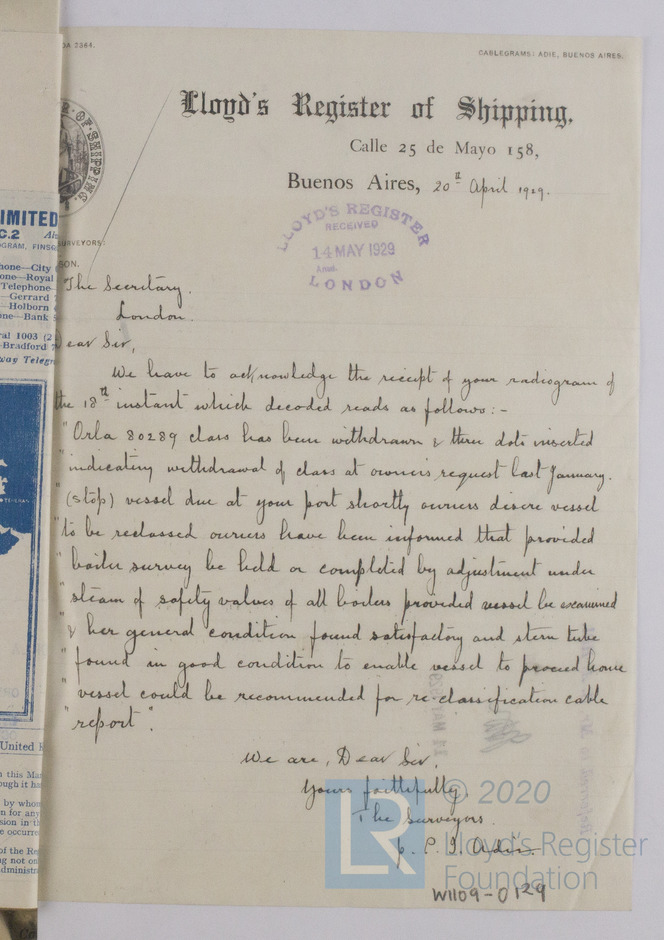 CABLEGRAMS: ADIE, BUENOS AIRES.
Lloyd's Register of Shipping,
Calle 25 de Mayo 158,
Buenos Aires, 20th April 1929.
LLOYD'S REGISTER
RECEIVED
14 MAY 1929
LONDON
SURVEYORS:
SON.
The Secretary.
London.
Dear Sir,
We have to acknowledge the receipt of your radiogram of
the 18th instant which decoded reads as follows:-
"Orla 80289 class has been withdrawn & three dots inserted
"indicating withdrawal of class at owners request last January.
"(stop) vessel due at your port shortly owners desire vessel
"to be reclassed owners have been informed that provided
"boiler survey be held or completed by adjustment under
"steam of safety valves of all boilers provided vessel be examined
"& her general condition found satisfactory and stern tube
"found in good condition to enable vessel to proceed home
"vessel could be recommended for re-classification cable
"report".
We are, Dear Sir,
Yours faithfully
The Surveyors.
p. P. J. Adie
© 2020
LR Lloyd's Register
Foundation
W1109-0129
LIMITED
C.2
GRAM, FINS
hone—City
one—Royal
Telephone—
Gerrard
Holborn
ne—Bank
al 1003 (2
Bradford
way Telegr
TEHERAN
United
n this Ma
ough it ha
by whom
n for any
sion in th
e occurre
of the Re
ng not on
dministr